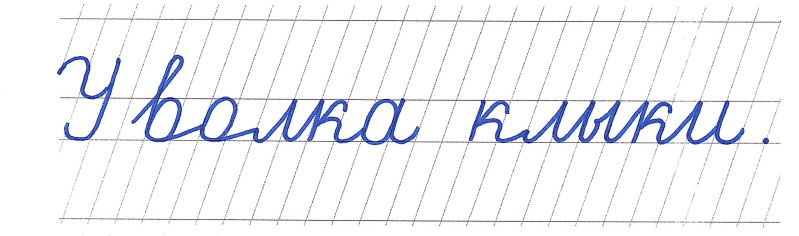 У волка клыки.